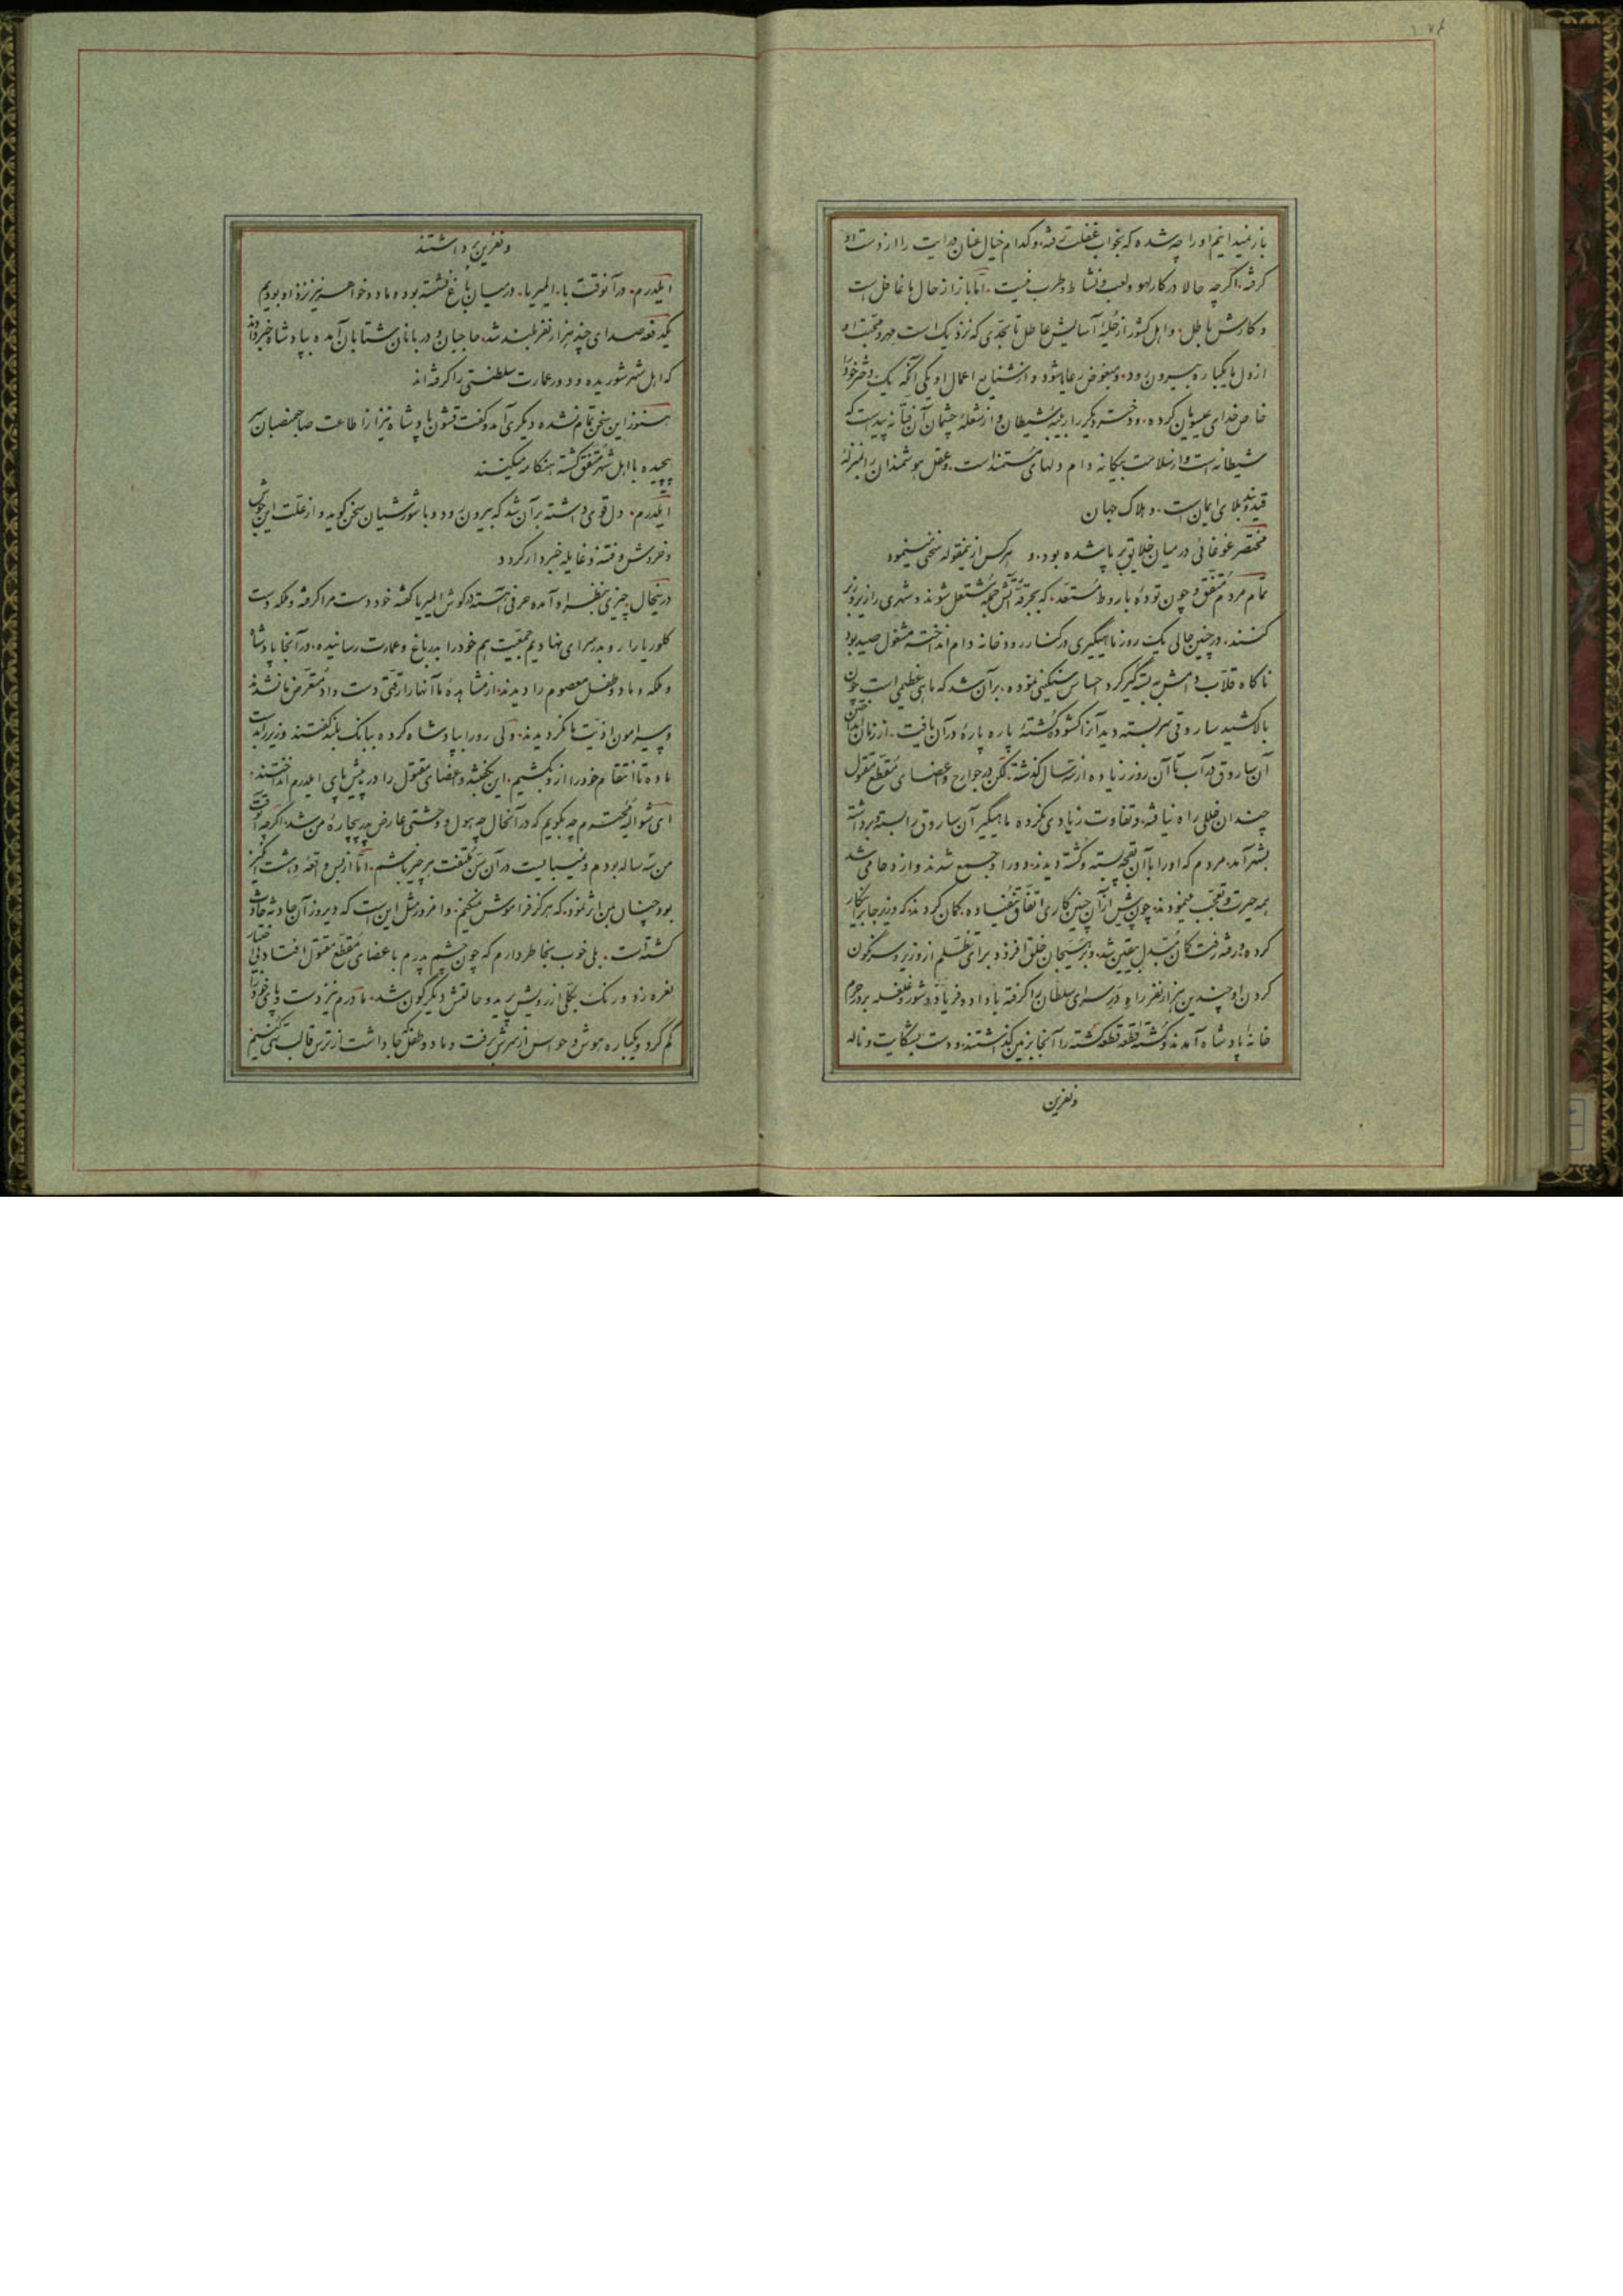 باز نمیدانیم او را چه شده که بخواب غفلت رفته و کدام خیال عنان درایت را از دست او
گرفته. اگرچه حالا در کار لهو و لعب و نشاط و طرب نیست. امّا باز از حال ما غافل است
و کارش باطل. و اهل کشور از حُلیهٔ آسایش عاطل تا بحدّی که نزدیک است مهر و محبّت او
از دل ما یکباره بیرون رود. و مبغوض رعایا شود و از شنایع اعمال او یکی آنکه یک دختر خود را
خاص خدای عیسویان کرده. و دختر دیگر را بندهٔ شیطان و از شعلهٔ چشمان آن فتّانه پیداست که
شیطانه است و از سلامت بیگانه دام دلهای مستمند است. و عقل هوشمندان را بمنزلهٔ
قید و بند بلای ایمان است. و هلاک جهان
مختصر غوغائی در میان خلایق برپا شده بود. و هرکس ازینمقوله سخنی مینمود
تمام مردم متفق و چون تودهٔ باروط مُستعد. که بجرقهٔ آتش جمله مُشتعل شوند و شهری را زیر و زبر
کنند. در چنین حالی یک روز ماهیگیری در کنار رودخانه دام انداخته مشغول صید بود
ناگاه قلّاب دامش به بسته گیر کرد احساس سنگینی نموده. برآن شد که ماهی عظیمی است چون
بالا کشید ساروقی سربسته دید آنرا گشوده کُشتهٔ پاره پاره در آن یافت. از زمان انداختن
آن ساروق در آب تا آن روز زیاده از سه سال گذشته. لکن در جوارح و اعضای مُقطّع مقتول
چندان خللی راه نیافته. و تفاوت زیادی نکرده ماهیگیر آن ساروق را بسته و برداشته
بشهر آمد. مردم که او را با آن بقچه بسته و کشته دیدند. دور او جمع شدند و ازدحامی شد
همه حیرت و تعجّب مینمودند. چون پیش از آن چنین کاری اتفاق نیفتاده. گمان کردند. که وزیر جابر اینکار
کرده. رفته رفته گمان مُبدّل بیقین شد. و بر هَیَجان خلق افزود و برای تظلّم از وزیر و سرنگون
کردن او چندین هزار نفر راهِ درِ سرای سلطان را گرفته با داد و فریاد و شور و غلغله بر در حرم
خانهٔ پادشاه آمدند و کُشتهٔ قطعه قطعه گشته را آنجا بزمین گذاشتند. و دست بشکایت و ناله
و نفرین
و نفرین برداشتند
ایلدرم. در آنوقت با. المیریا. در میان باغ نشسته بود و ما دو خواهر نیز نزد او بودیم
یکدفعه صدای چند هزار نفر بلند شد. حاجبان و دربانان شتابان آمده بپادشاه خبر دادند
که اهل شهر شوریده و دور عمارت سلطنتی را گرفته‌اند
هنوز این سخن تمام نشده دیگری آمد و گفت قشون پادشاه نیز از اطاعت صاحبمنصبان سر
پیچیده با اهل شهر متفق گشته هنگامه میکنند
ایلدرم. دل قوی داشته برآن شد که بیرون رود و با شورشیان سخن گوید و از علّت این جوش
و خروش و فتنه و غایله خبردار گردد
درینحال چیزی بنظر او آمده حرفی آهسته در گوش المیریا گفته خود دست مرا گرفته و ملکه دست
کلوریا را رو بدر سرای نهادیم جمعیت هم خود را بدر باغ و عمارت رسانیده. در آنجا پادشاه
و ملکه و ما دو طفل معصوم را دیدند. از مشاهدهٔ ما آنها را رقّتی دست داد مُتعرّض ما نشدند
و پیرامون اذیّت ما نگردیدند. ولی رو را بپادشاه کرده ببانگ بلند گفتند وزیر را بدست
ما ده تا انتقام خود را از او بکشیم. این بگفته و اعضای مقتول را در پیش پای ایلدرم انداختند.
ای شوالیهٔ محترم چه بگویم که در آنحال چه هول و وحشتی عارض پدر بیچارهٔ من شد. اگرچه آنوقت
من سه ساله بودم و میبایست در آن سنّ ملتفت هر چیز نباشم. امّا از بس واقعه دهشت‌انگیز
بود چنان بمن اثر نمود. که هرگز فراموش نمیکنم. و امروز مثل این است که دیروز آن حادثه حادث
گشته است. بلی خوب بخاطر دارم که چون چشم پدرم باعضای مُقطّع مقتول افتاد بی‌اختیار
نعره زد و رنگ بکلّی از رویش پرید و حالتش دیگرگون شد. مادرم نیز دست و پای خود را
گم کرد و یکباره هوش و حواس از سرش رفت و ما دو طفل کجا داشت از ترس قالب تهی کنیم